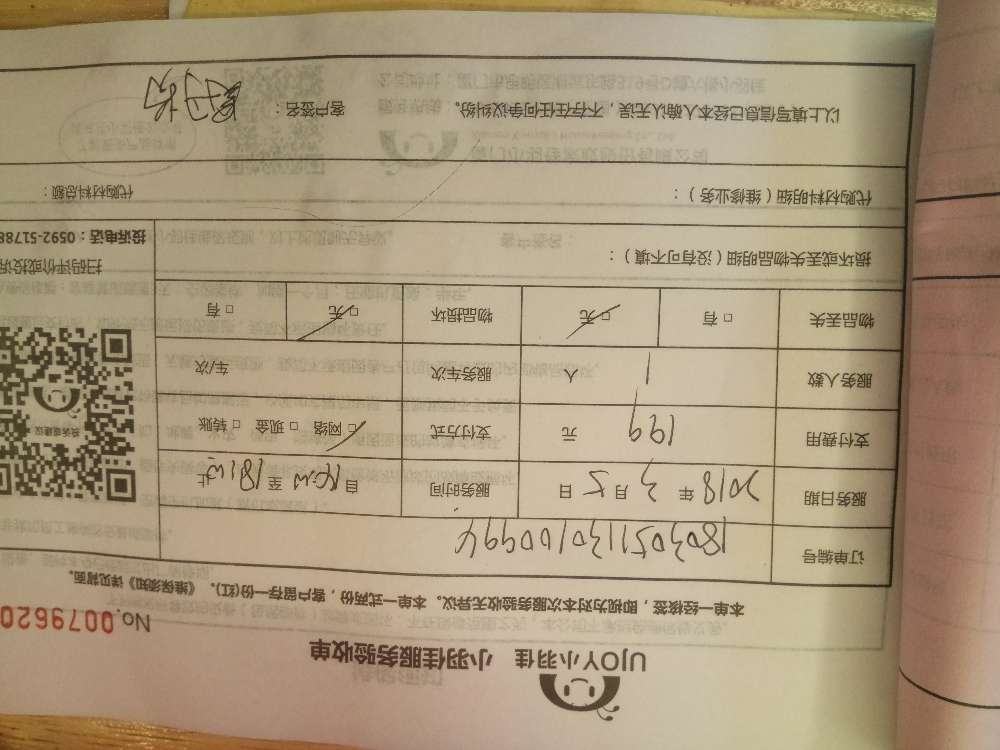 UJOY小羽佳 小羽佳服务验收单
No.0079620
本单一经接签，即视为对本次服务验收无异议。本单一式两份，客户留存一份(红)。《维保须知》详见背面。
订单编号 1803051130100994
服务日期 2018 年 3 月 5 日 服务时间 自 16:00 至 18:00 止
支付费用 199 元 支付方式 ☑ 网络 □ 现金 □ 转账
服务人数 1 人 服务车次 车/次
物品丢失 □ 有 ☑ 无 物品损坏 ☑ 无 □ 有
损坏或丢失物品明细（没有可不填）：
扫码评价或投诉
投诉电话：0592-51788
代购材料明细（维修业务）：
代购材料总额：
以上填写信息已经本人确认无误，不存在任何争议纠纷。 客户签名：